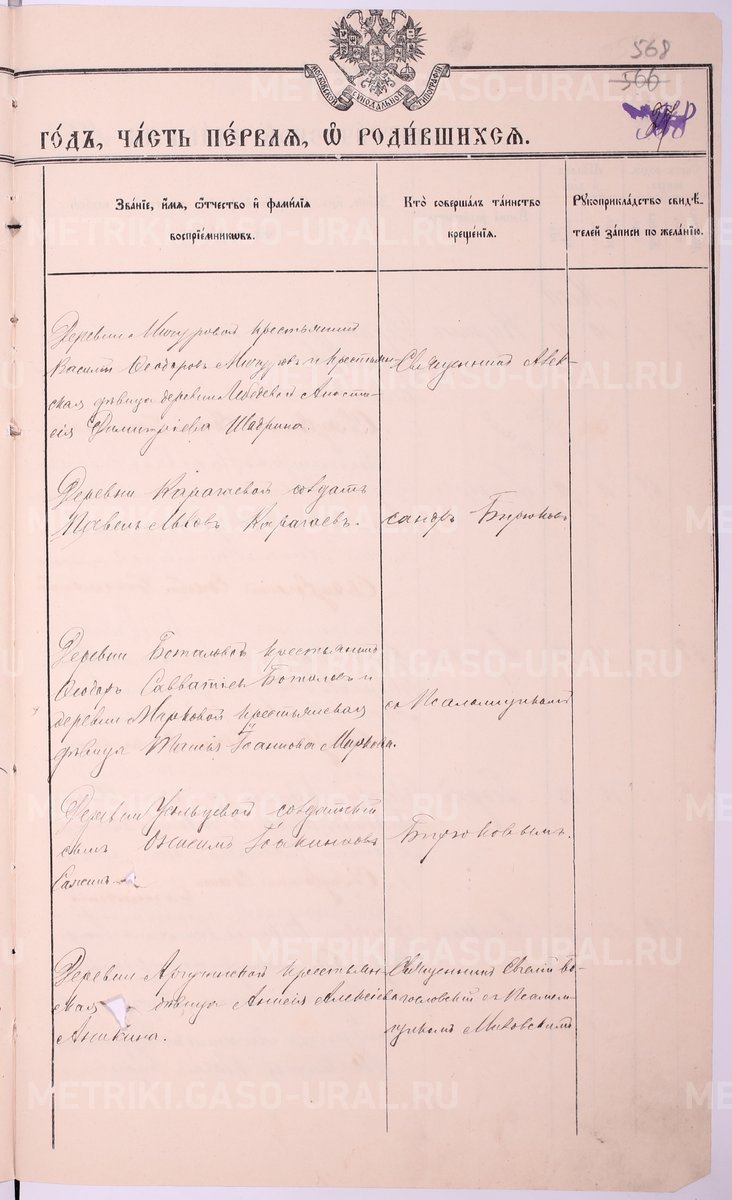 568
566
МОСКОВСКОЙ СѴНОДАЛЬНОЙ ТИПОГРАФІИ
ГО́ДЪ, ЧА́СТЬ ПЕ́РВАѦ, Ѡ҆ РОДИ́ВШИХСѦ.
Зва́нїе, и҆́мѧ, ѻ҆́тчество и҆ фами́лїѧ
воспрїе́мникѡвъ.
Кто̀ соверша́лъ та́инство
креще́нїѧ.
Рꙋкоприкла́дство свидѣ́-
телей за́писи по жела́нїю.
Деревни крестьянинъ
Василій Ѳеодоровъ и крестьян-
ская дѣвица деревни Лебедевой Анаста-
сія Димитріева Шаврина.
Священникъ Алек-
Деревни Карагаевой солдатъ
Павелъ Львовъ Карагаевъ.
сандръ Бирюковъ
Деревни Боталовой крестьянинъ
Ѳеодоръ Савватіевъ Боталовъ и
деревни Марковой крестьянская
дѣвица Іоаннова Маркова.
съ Псаломщикомъ
Деревни солдатскій
сынъ Онисимъ Іоакимовъ
Бирюковымъ.
Деревни крестьян-
ская дѣвица Анисія Алексіева
Аникина.
Священникъ Евгеній Бо-
гословскій съ Псалом-
щикомъ
METRIKI.GASO-URAL.RU